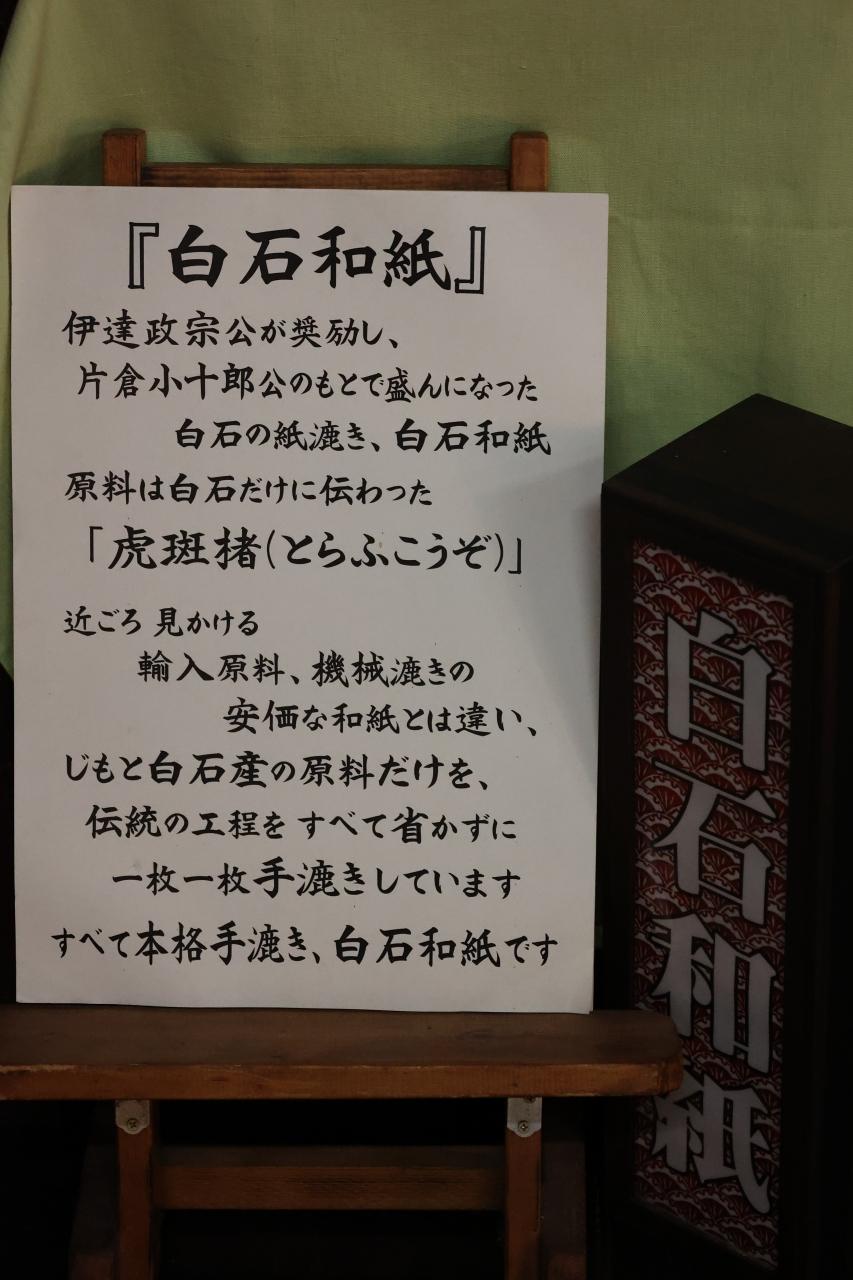 『白石和紙』
伊達政宗公が奨励し、
片倉小十郎公のもとで盛んになった
白石の紙漉き、白石和紙
原料は白石だけに伝わった
「虎斑楮(とらふこうぞ)」
近ごろ 見かける
輸入原料、機械漉きの
安価な和紙とは違い、
じもと白石産の原料だけを、
伝統の工程を すべて省かずに
一枚一枚手漉きしています
すべて本格手漉き、白石和紙です
白石和紙